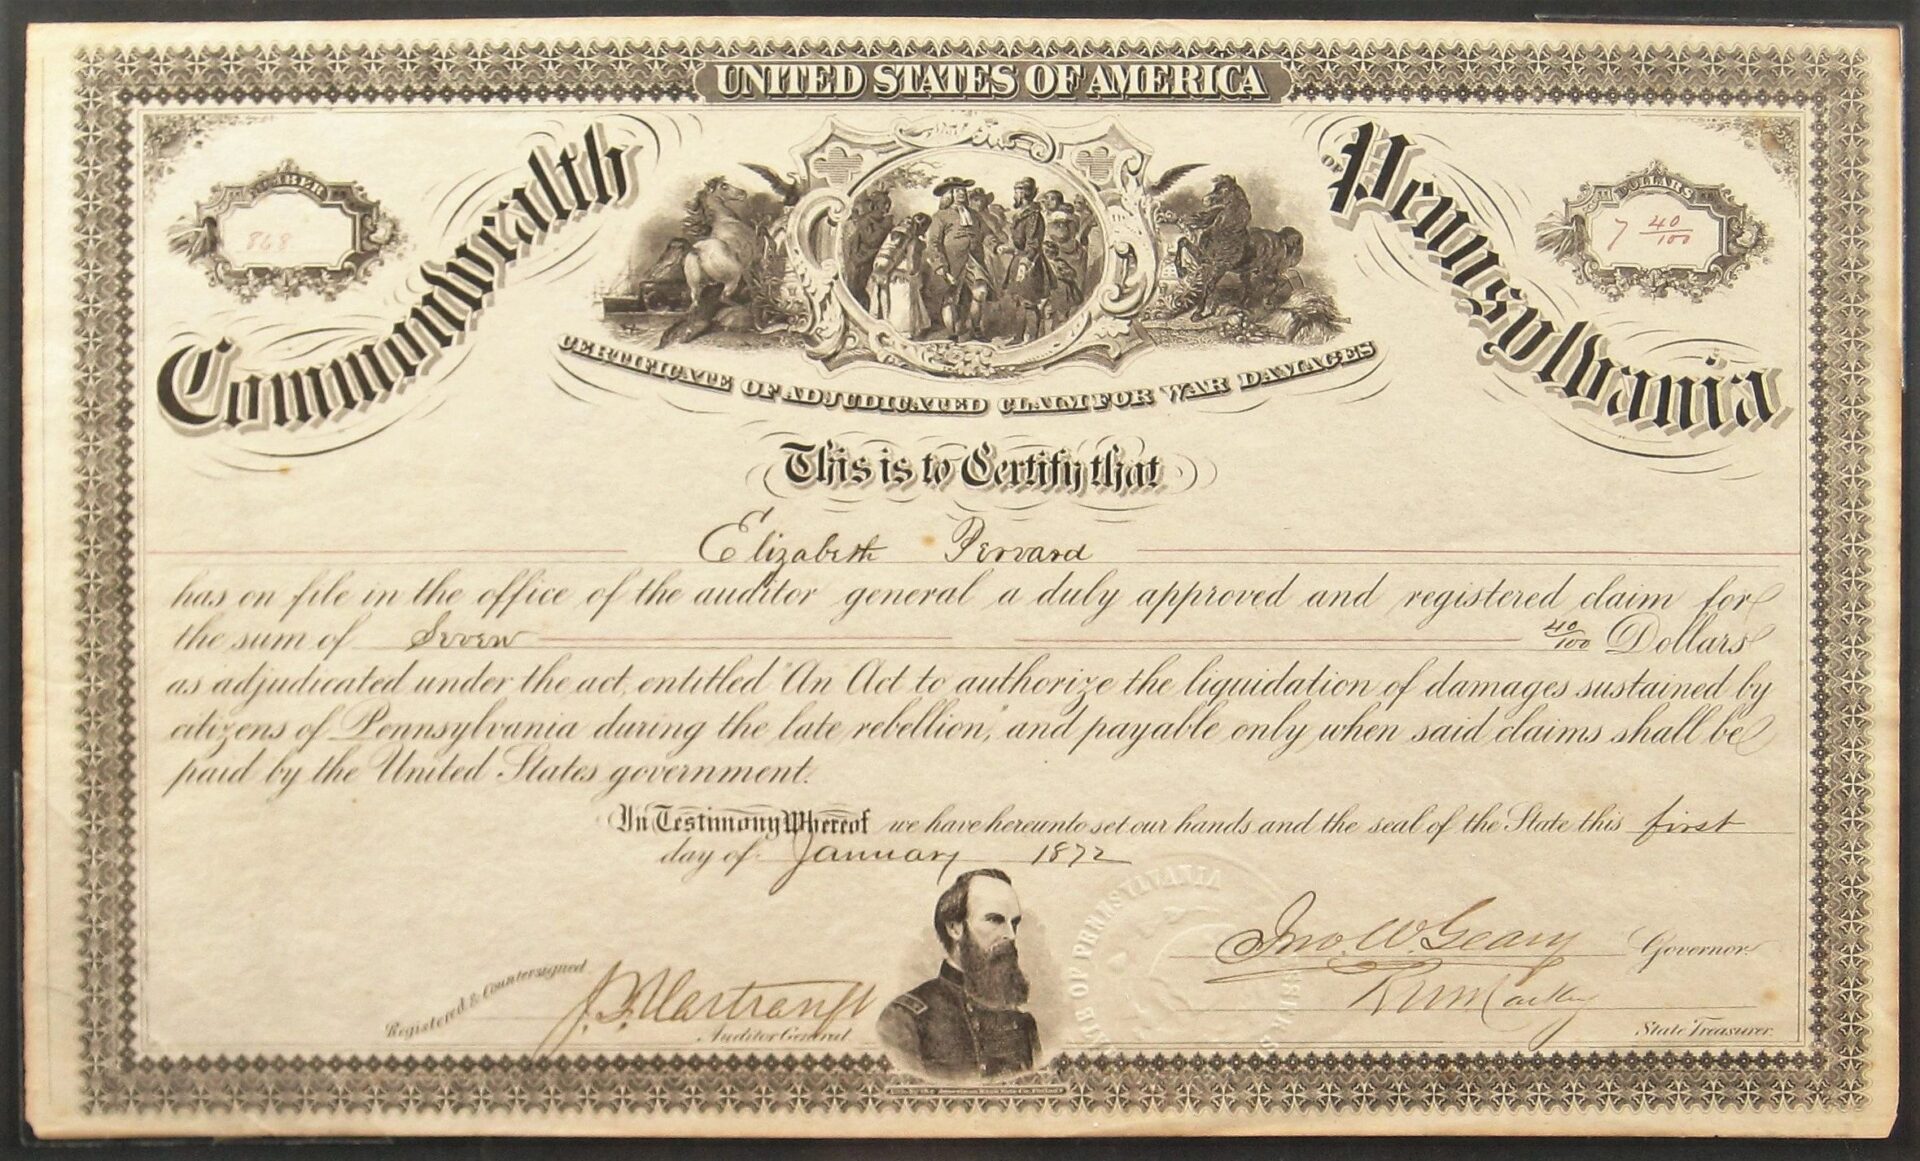 UNITED STATES OF AMERICA
Commonwealth of Pennsylvania
NUMBER
868
DOLLARS
7 40/100
CERTIFICATE OF ADJUDICATED CLAIM FOR WAR DAMAGES
This is to Certify that
Elizabeth
has on file in the office of the auditor general a duly approved and registered claim for
the sum of Seven 40/100 Dollars
as adjudicated under the act, entitled "An Act to authorize the liquidation of damages sustained by
citizens of Pennsylvania during the late rebellion," and payable only when said claims shall be
paid by the United States government.
In Testimony Whereof we have hereunto set our hands and the seal of the State this first
day of January 1872
Jno. W. Geary Governor.
Registered & Countersigned
J. F. Hartranft
Auditor General
R W Mackey
State Treasurer
PENNSYLVANIA
American Bank Note Co.